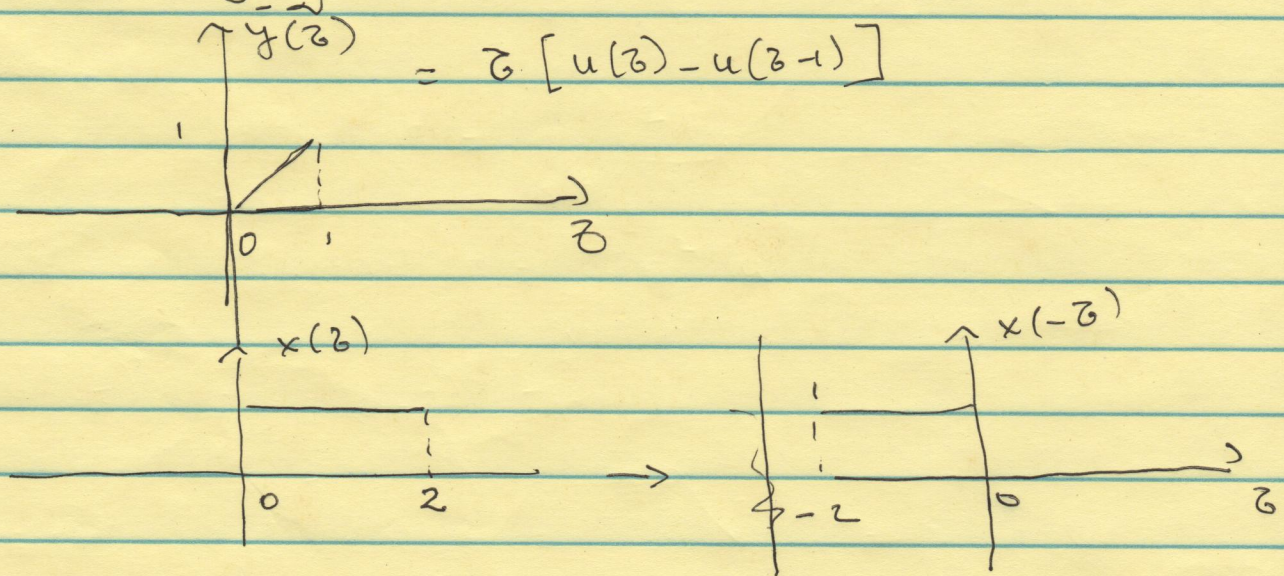 y(τ)
= τ [u(τ) - u(τ-1)]
1
0 1 τ
x(τ) x(-τ)
0 2 → -2 0 τ